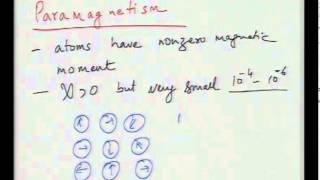 Paramagnetism
– atoms have nonzero magnetic
moment
– χ>0 but very small 10⁻⁴ – 10⁻⁶